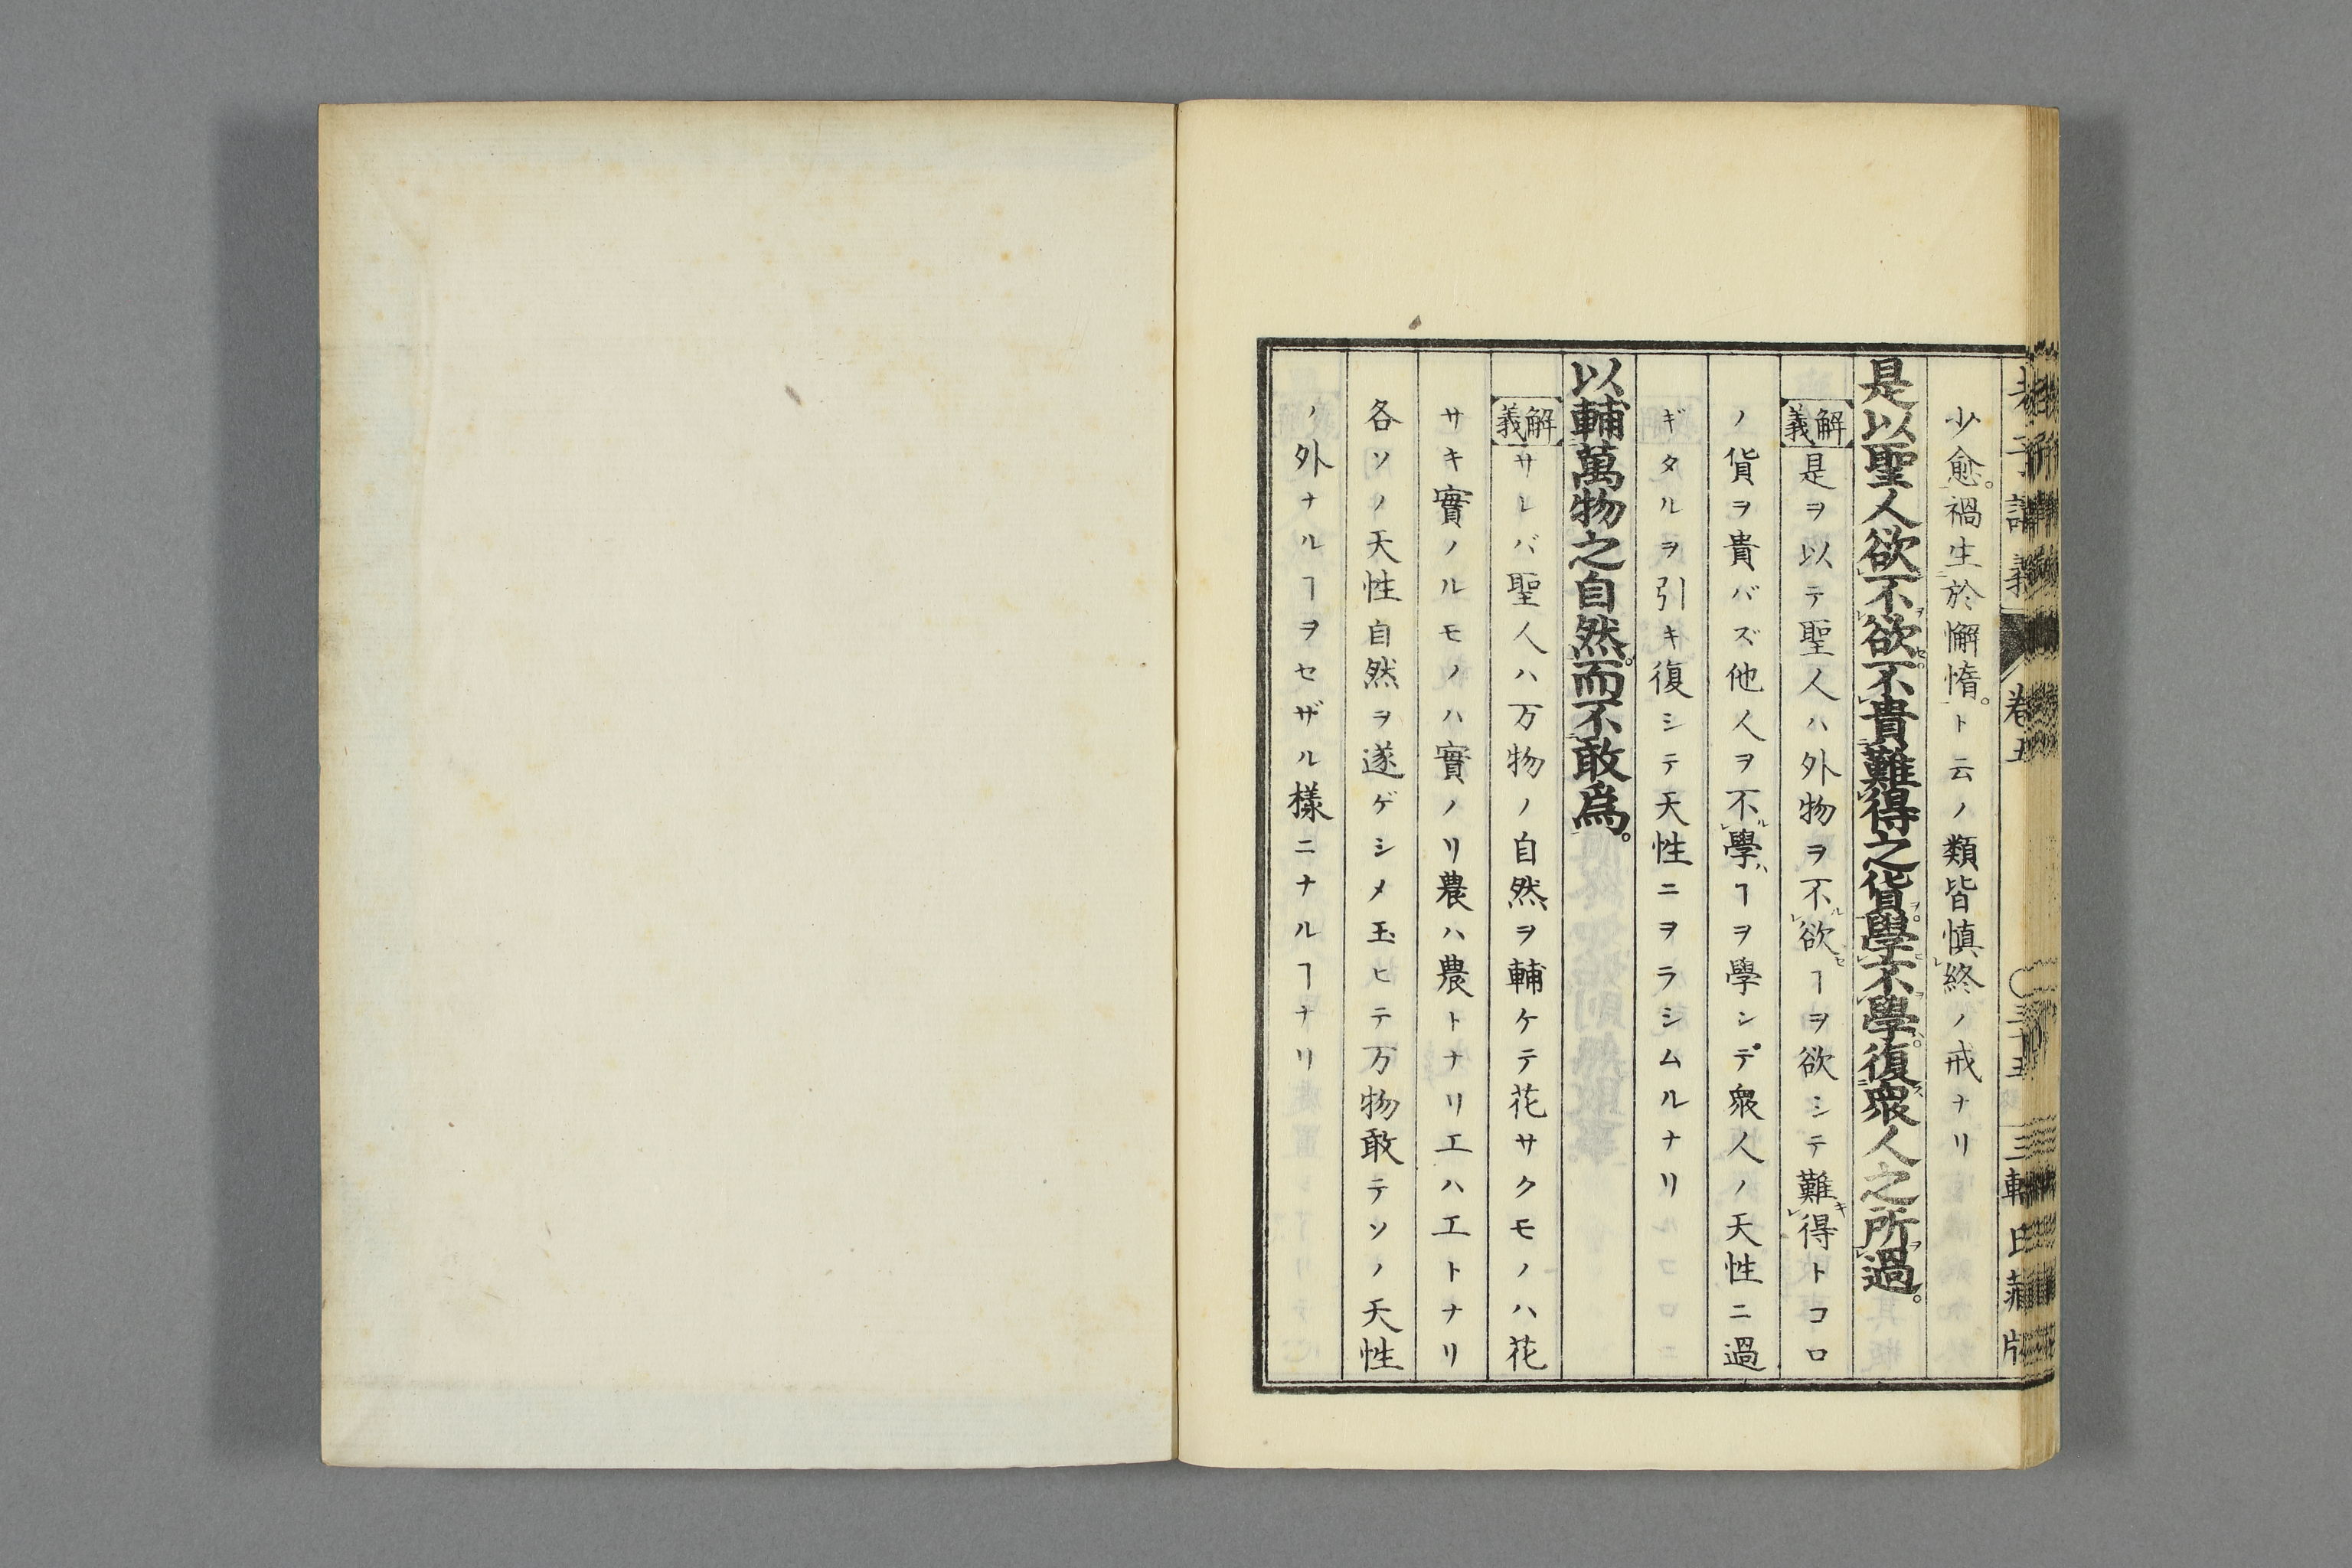 老子講義 卷五 三十五 三軒氏蔵版
少愈。禍生於懈惰。ト云ノ類皆慎終ノ戒ナリ
是以聖人欲不欲。不貴難得之貨。學不學。復衆人之所過。
解義 是ヲ以テ聖人ハ外物ヲ不欲ヿヲ欲シテ難得トコロ
ノ貨ヲ貴バズ他人ヲ不學ヿヲ學ンデ衆人ノ天性ニ過
ギタルヲ引キ復シテ天性ニヲラシムルナリ
以輔萬物之自然。而不敢爲。
解義 サレバ聖人ハ万物ノ自然ヲ輔ケテ花サクモノハ花
サキ實ノルモノハ實ノリ農ハ農トナリ工ハ工トナリ
各ソノ天性自然ヲ遂ゲシメ玉ヒテ万物敢テソノ天性
ノ外ナルヿヲセザル様ニナルヿナリ